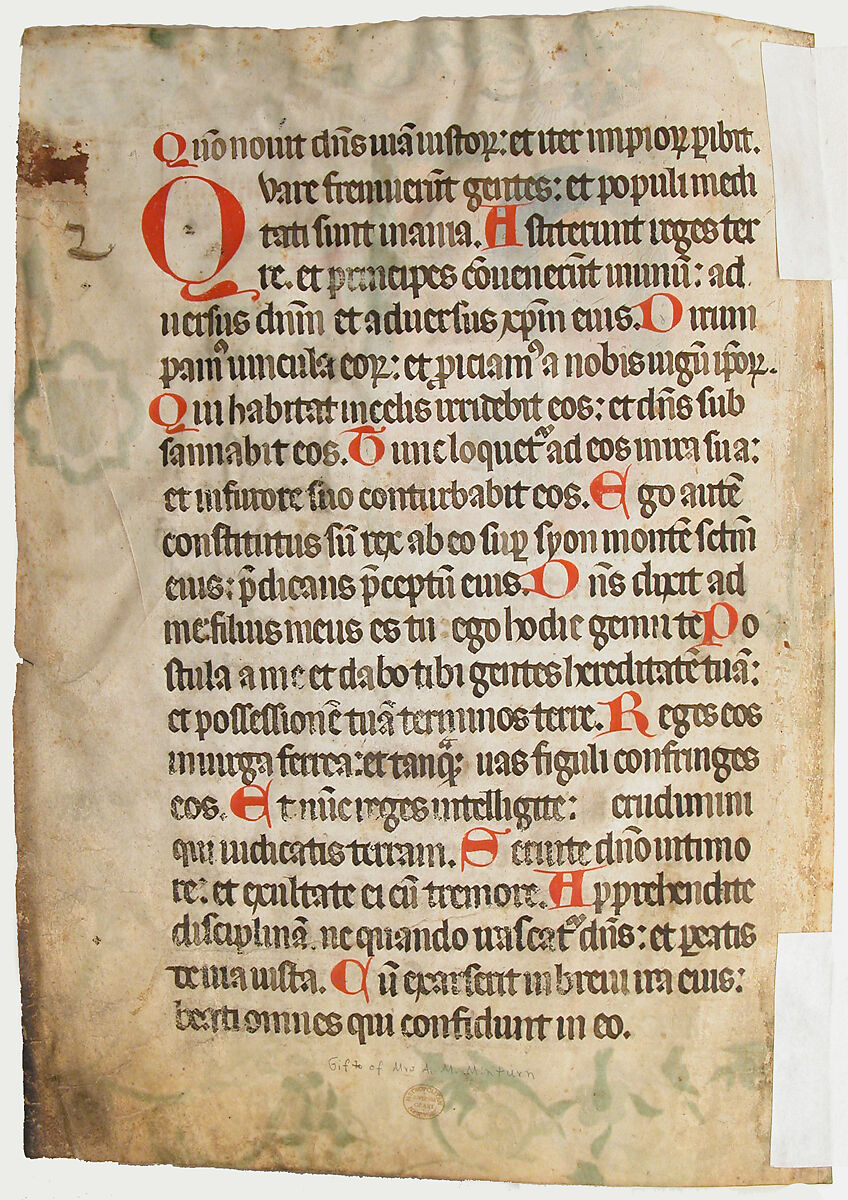 Qm̄o nouit dn̄s uiā iustoꝝ: et iter impioꝝ ꝑibit.
Quare fremuerūt gentes: et populi medi
tati sunt inania. Astiterunt reges ter
re. et principes cōuenerūt inunū: ad
uersus dn̄m et aduersus xp̄m eius. Dirum
pamꝰ uincula eoꝝ: et ꝓiciamꝰ a nobis iugū ip̄oꝝ.
Qui habitat incelis irridebit eos: et dn̄s sub
sannabit eos. Tunc loquet᷑ ad eos inira sua:
et infurore suo conturbabit eos. Ego autē
constitutus sū rex ab eo suꝑ syon montē sc̄tm̄
eius: p̄dicans p̄ceptū eius. Dn̄s dixit ad
me: filius meus es tu ego hodie genui te Po
stula a me et dabo tibi gentes hereditatē tuā:
et possessionē tuā terminos terre. Reges eos
inuirga ferrea: et tanqᷓ; uas figuli confringes
eos. Et nūc reges intelligite: erudimini
qui iudicatis terram. Seruite dn̄o intimo
re: et exultate ei cū tremore. Apprehendite
disciplinā. ne quando irascat᷑ dn̄s: et ꝑeatis
de uia iusta. Cū exarserit inbreui ira eius:
beati omnes qui confidunt in eo.
2
Gift of Mrs A. M. Minturn